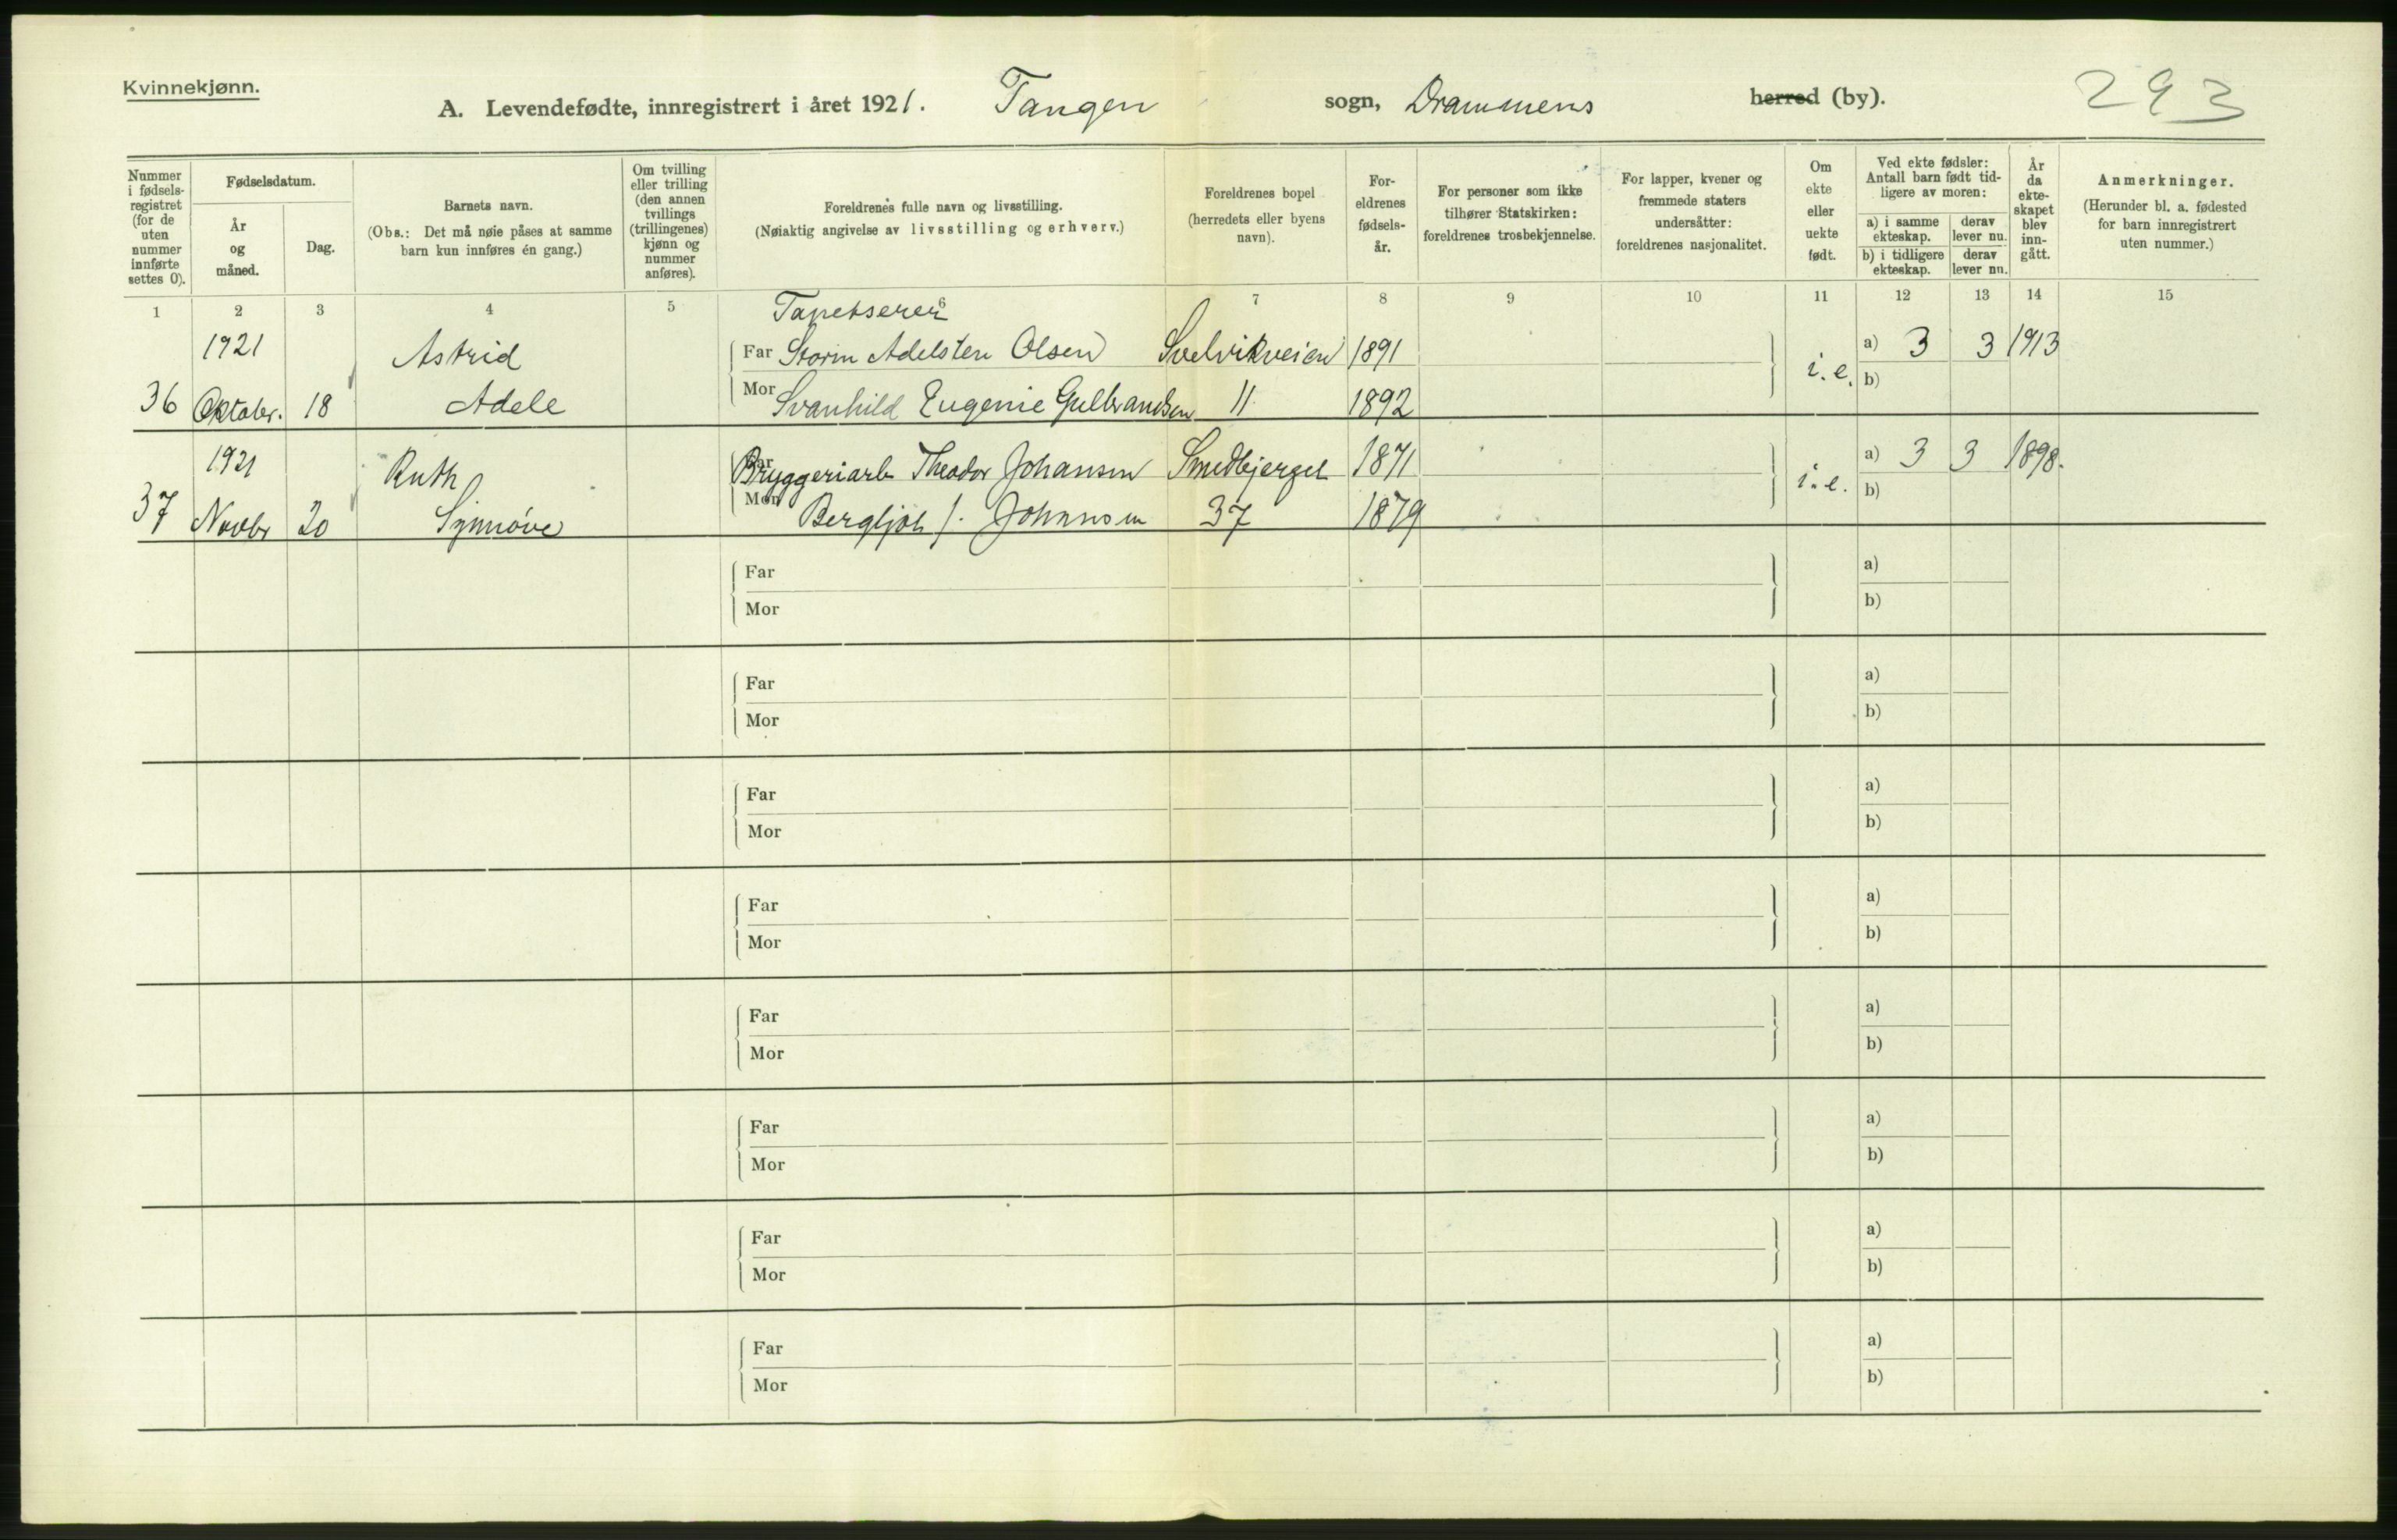 Kvinnekjønn.
A. Levendefødte, innregistrert i året 1921. Tangen sogn, Drammens herred (by). 293
Nummer i fødsels-registret (for de uten nummer innførte settes 0).
Fødselsdatum.
År og måned.
Dag.
Barnets navn.
(Obs.: Det må nøie påses at samme barn kun innføres én gang.)
Om tvilling eller trilling (den annen tvillings (trillingenes) kjønn og nummer anføres).
Foreldrenes fulle navn og livsstilling.
(Nøiaktig angivelse av livsstilling og erhverv.)
Foreldrenes bopel
(herredets eller byens navn).
For-eldrenes fødsels-år.
For personer som ikke tilhører Statskirken: foreldrenes trosbekjennelse.
For lapper, kvener og fremmede staters undersåtter: foreldrenes nasjonalitet.
Om ekte eller uekte født.
Ved ekte fødsler: Antall barn født tid-ligere av moren:
a) i samme ekteskap. derav lever nu.
b) i tidligere ekteskap. derav lever nu.
År da ekte-skapet blev inn-gått.
Anmerkninger.
(Herunder bl. a. fødested for barn innregistrert uten nummer.)
1 2 3 4 5 6 7 8 9 10 11 12 13 14 15
Tapetserer
1921 Astrid Far Storm Adelsten Olsen Svelvikveien 1891 a) 3 3 1913
36 Oktober. 18 Adele Mor Svanhild Eugenie Gulbrandsen 11 1892 i. e. b)
1921 Ruth Far Bryggeriarb Theodor Johansen Smedbjerget 1871 a) 3 3 1898.
37 Novbr 20 Synnøve Mor Bergljot f. Johansen 37 1879 i. e. b)
Far a)
Mor b)
Far a)
Mor b)
Far a)
Mor b)
Far a)
Mor b)
Far a)
Mor b)
Far a)
Mor b)
Far a)
Mor b)
Far a)
Mor b)